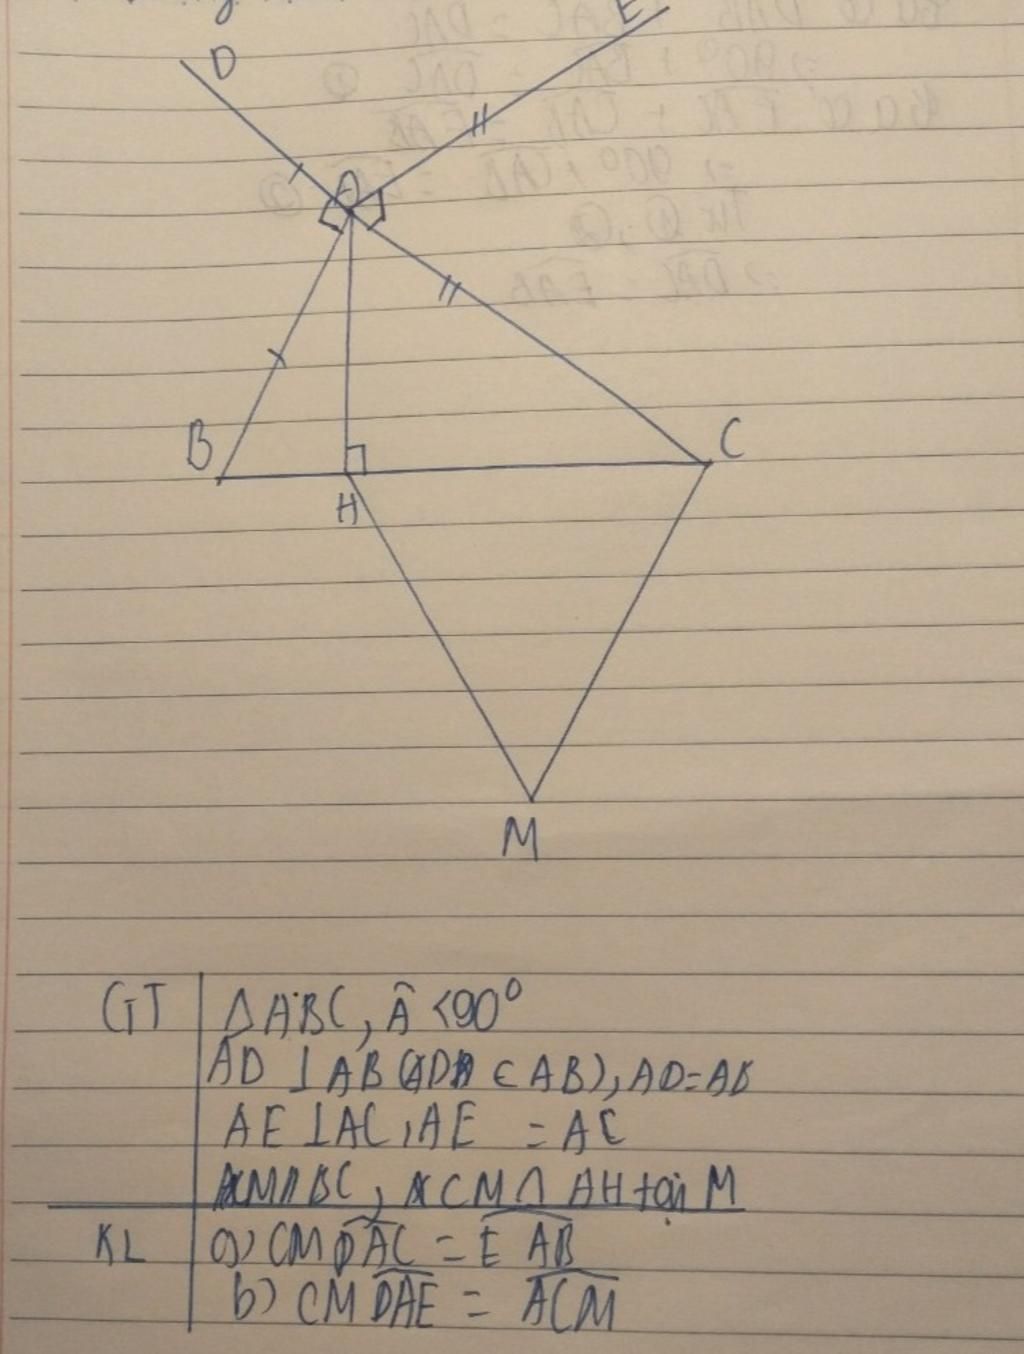 D
E
A
B
C
H
M
GT
ΔABC, Â <90°
AD ⊥ AB ⊂ AB), AD=AB
AE ⊥ AC, AE = AC
BC, CM ∩ AH tại M
KL
a) CM DAC = EAB
b) CM DAE = ACM